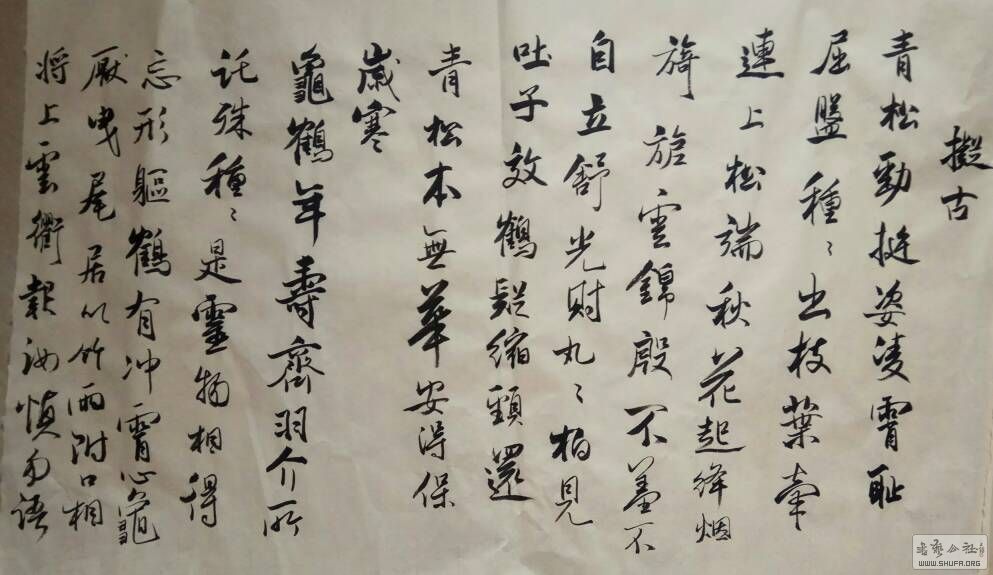 擬古
青松勁挺姿凌霄恥
屈盤種〻出枝葉牽
連上松端秋花起絳烟
旖旎雲錦殷不羞不
自立舒光射丸〻柏見
吐子效鶴疑縮頸還
青松本無華安得保
歲寒
龜鶴年壽齊羽介所
託殊種〻是靈物相得
忘形軀鶴有冲霄心龜
厭曳尾居以竹兩附口相
將上雲衢報汝慎勿語
WWW.SHUFA.ORG